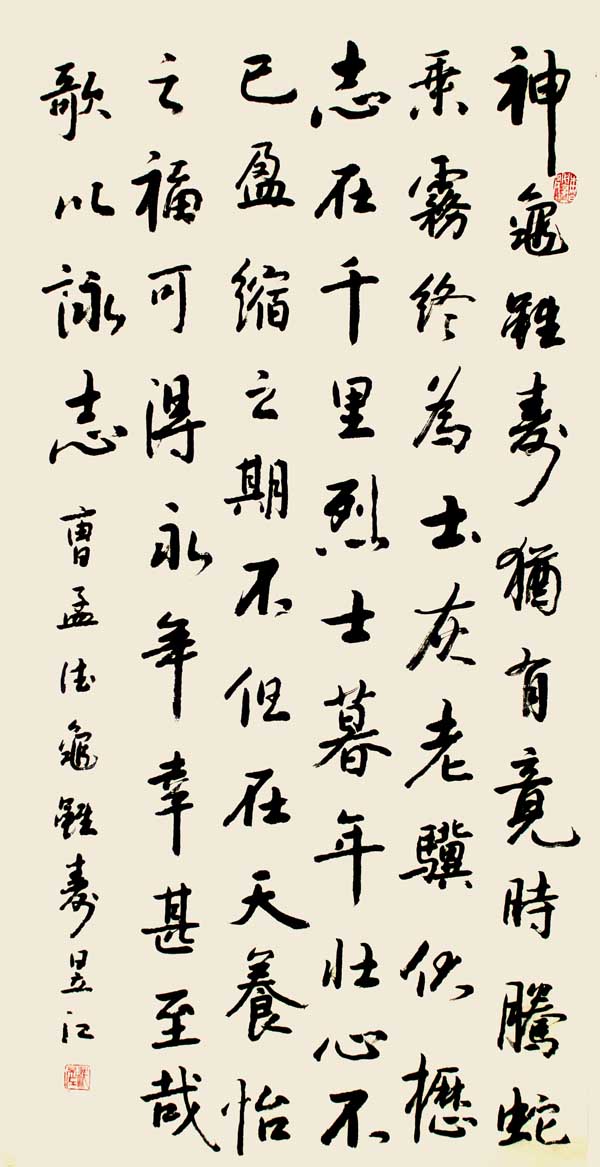 神龜雖壽猶有竟時騰蛇
乘霧終為土灰老驥伏櫪
志在千里烈士暮年壯心不
已盈縮之期不但在天養怡
之福可得永年幸甚至哉
歌以詠志 曹孟德龜雖壽昱江